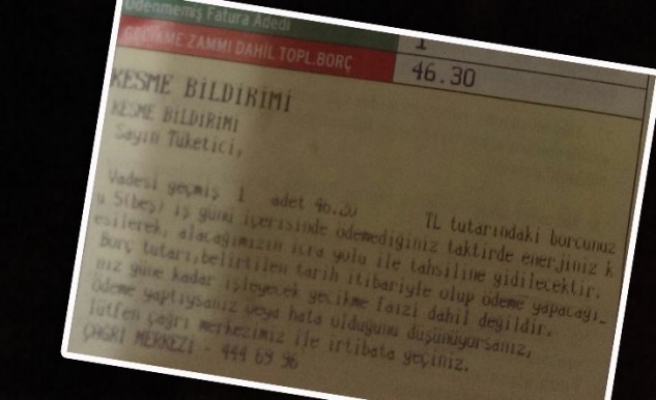 Ödenmemiş Fatura Adedi 1
GECİKME ZAMMI DAHİL TOPL.BORÇ 46.30
KESME BİLDİRİMİ
KESME BİLDİRİMİ
Sayın Tüketici,
Vadesi geçmiş 1 adet 46.30 TL tutarındaki borcunuz
u 5(beş) iş günü içerisinde ödemediğiniz taktirde enerjiniz k
esilerek, alacağımızın icra yolu ile tahsiline gidilecektir.
Borç tutarı,belirtilen tarih itibariyle olup ödeme yapacağı_
nız güne kadar işleyecek gecikme faizi dahil değildir.
Ödeme yaptıysanız veya hata olduğunu düşünüyorsanız,
lütfen çağrı merkezimiz ile irtibata geçiniz.
ÇAĞRI MERKEZİ - 444 69 96